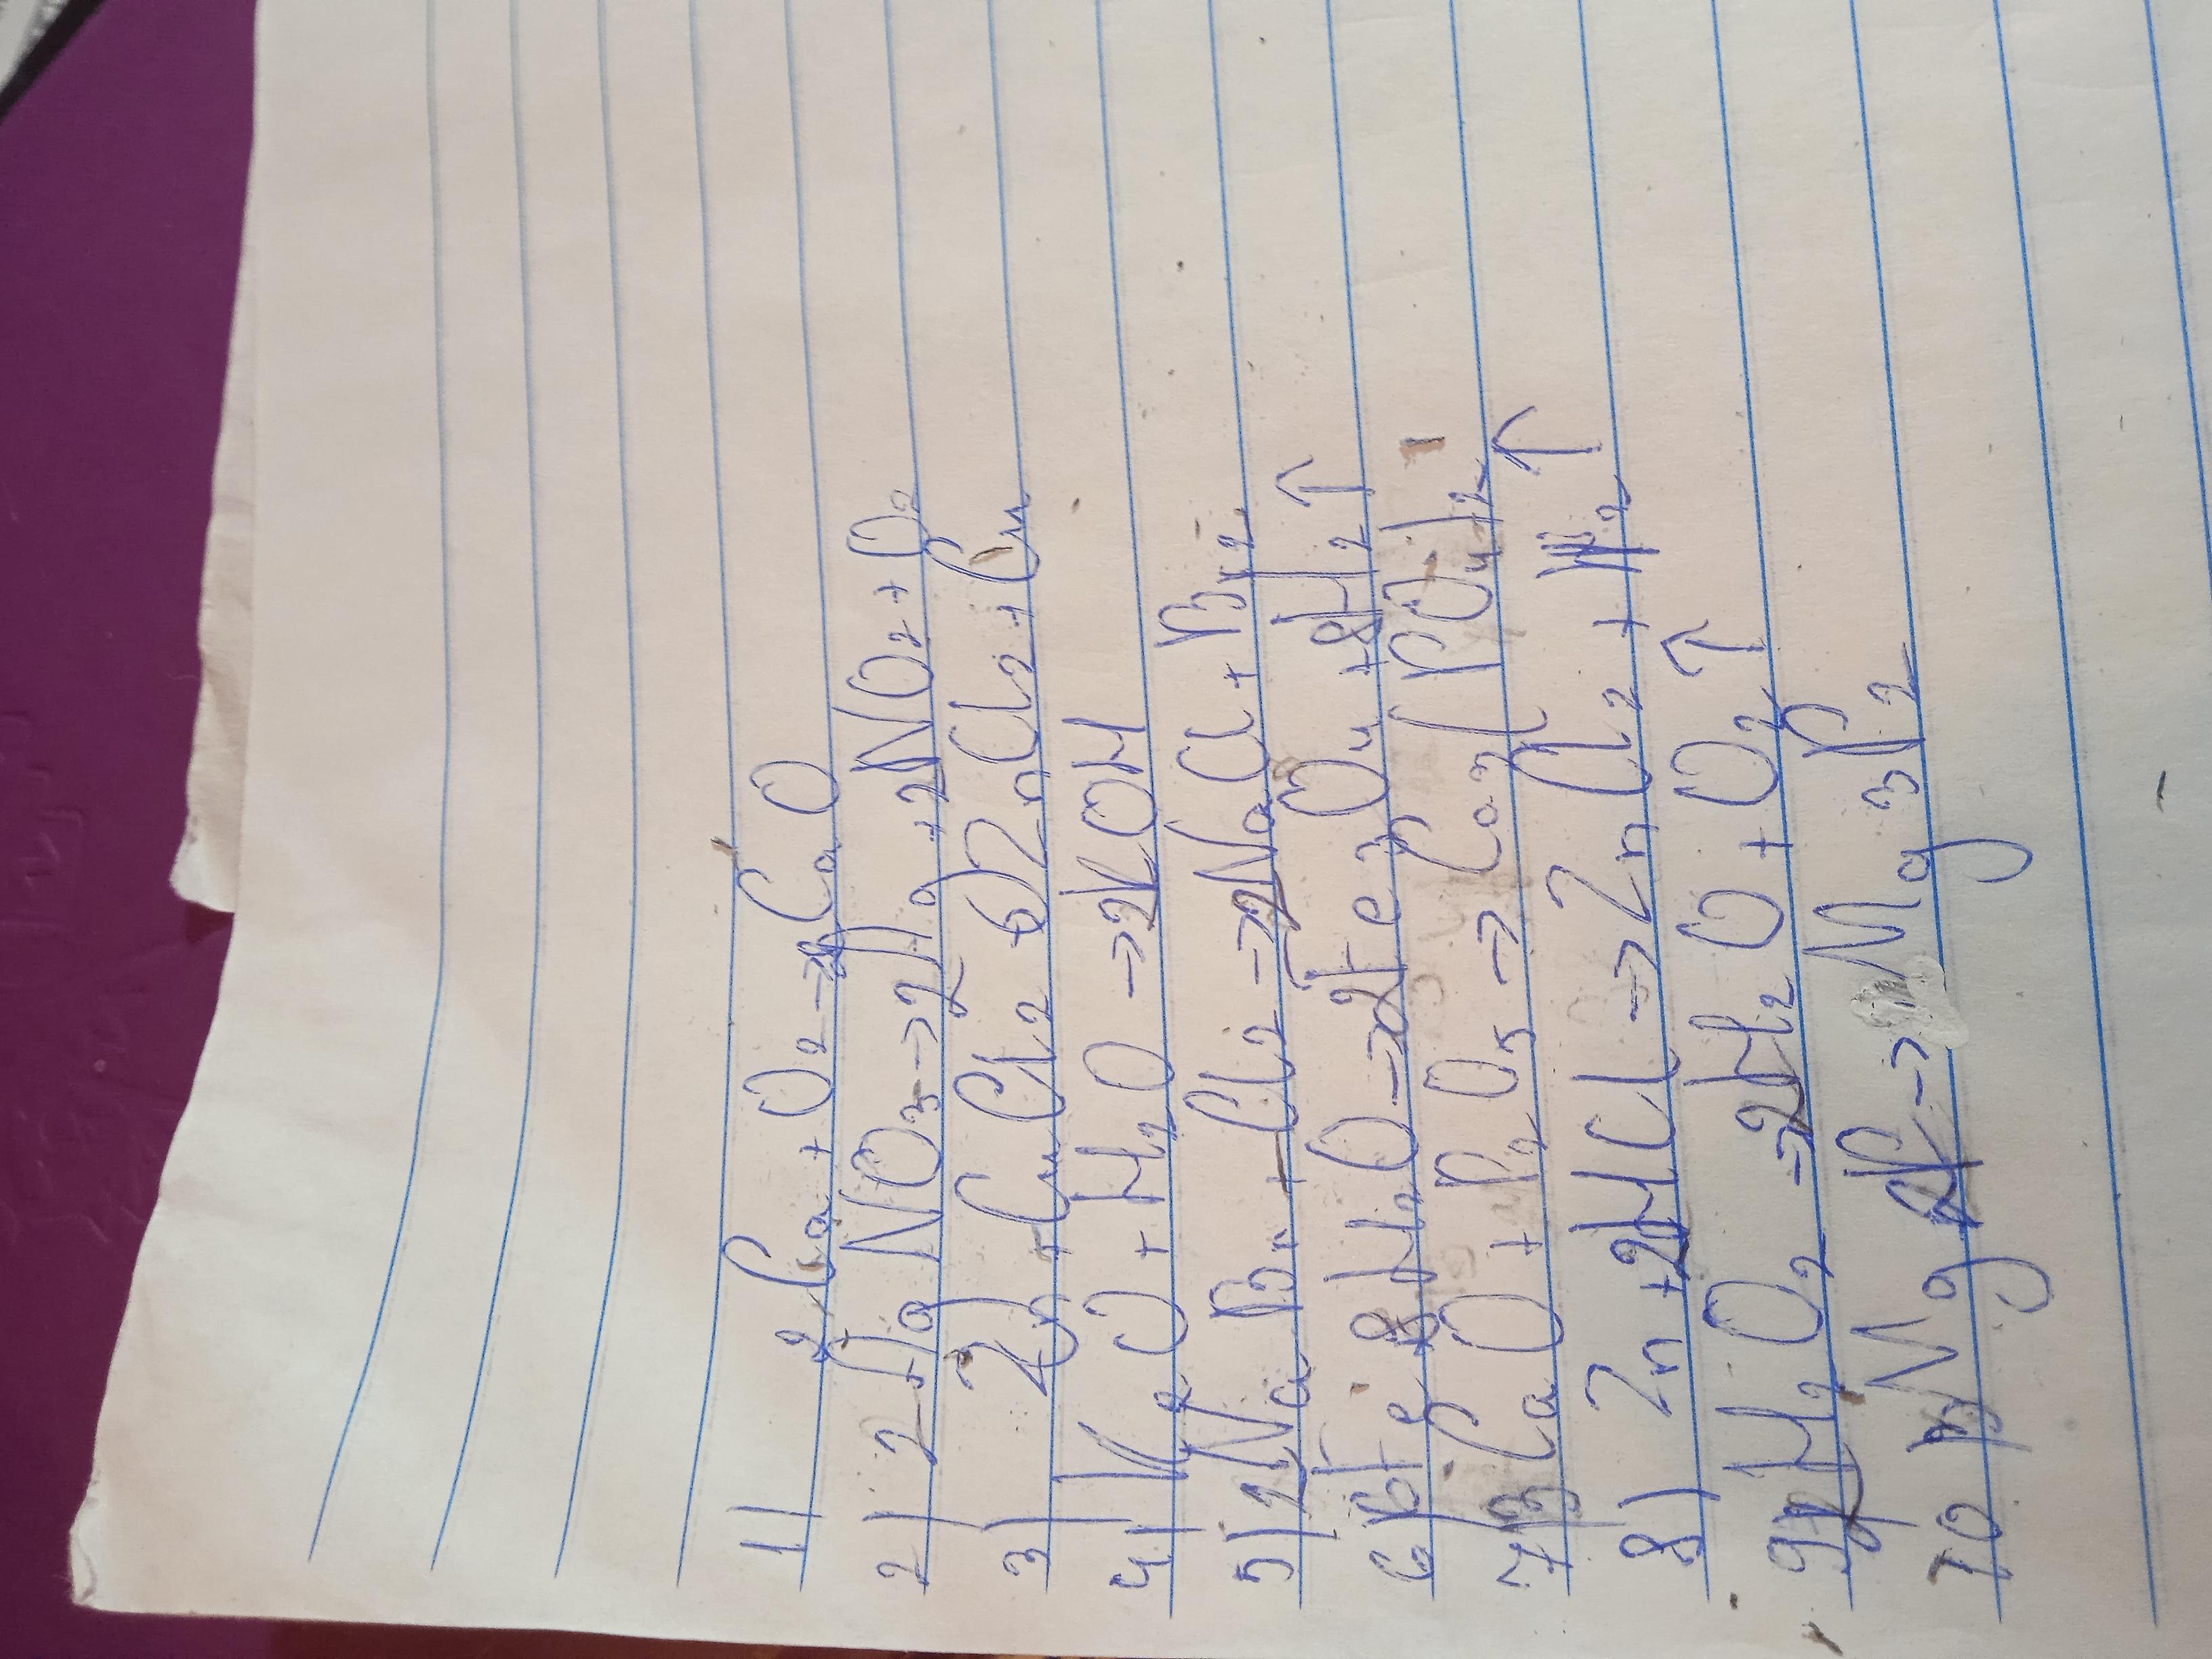 1) 2Ca + O2 → 2CaO
2) 2AgNO3 → 2Ag + 2NO2 + O2
3) Zn + CuCl2 → ZnCl2 + Cu
4) K2O + H2O → 2KOH
5) 2NaBr + Cl2 → 2NaCl + Br2
6) Fe 8H2O → 2Fe3O4 + 8H2↑
7) 3CaO + P2O5 → Ca3(PO4)2
8) Zn + 2HCl → ZnCl2 + H2↑
9) 2H2O2 → 2H2O + O2↑
10 3Mg 2P → Mg3P2